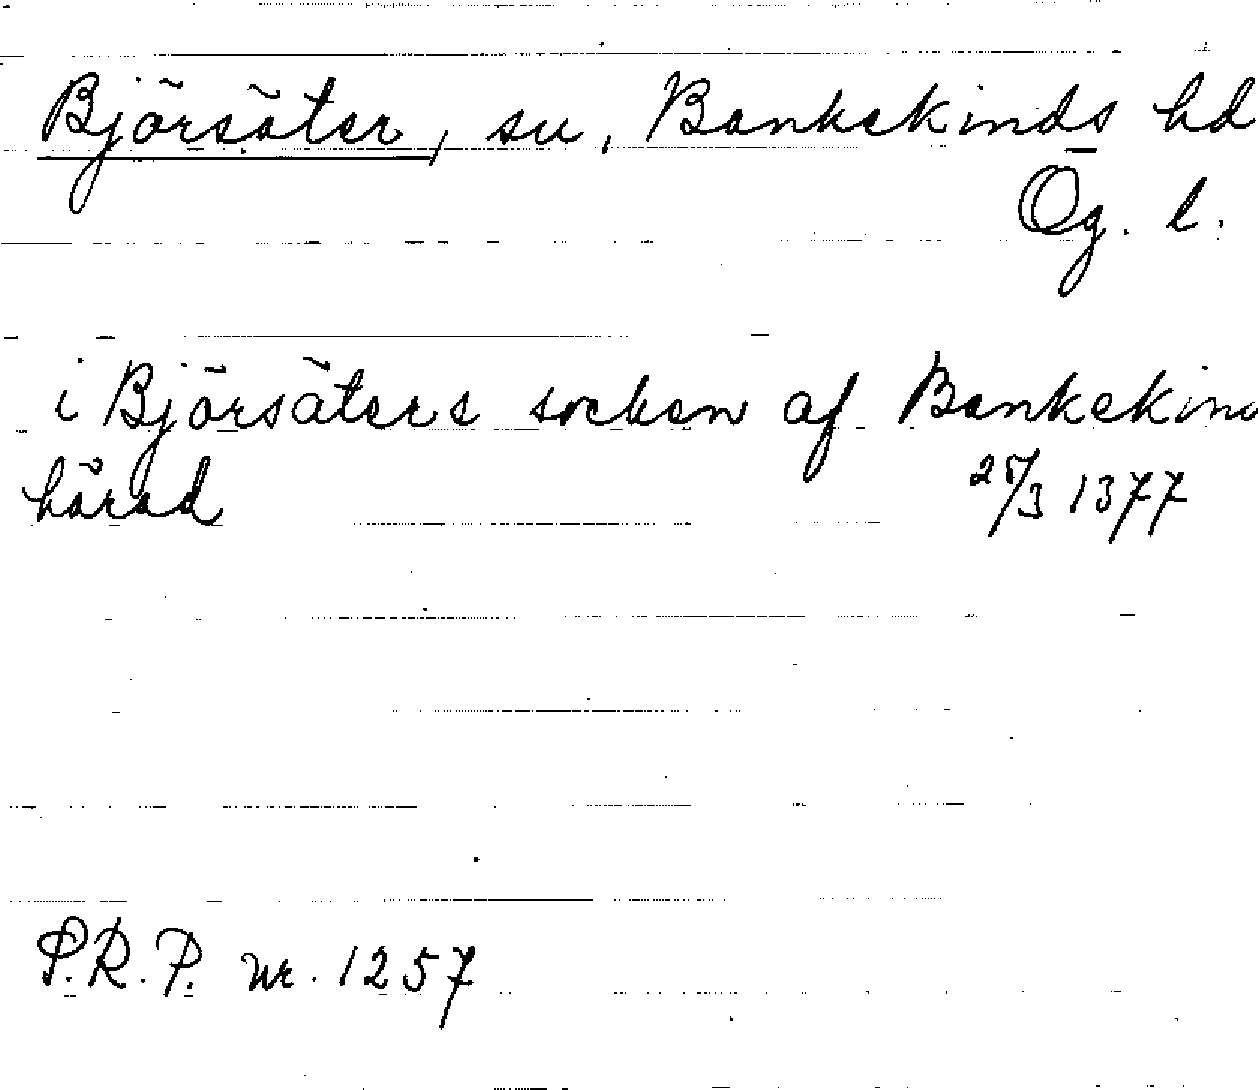 Björsäter, sn, Bankekinds hd
Ög. l.
i Björsäters socken af Bankekind
härad 25/3 1377
P.R.P. nr. 1257